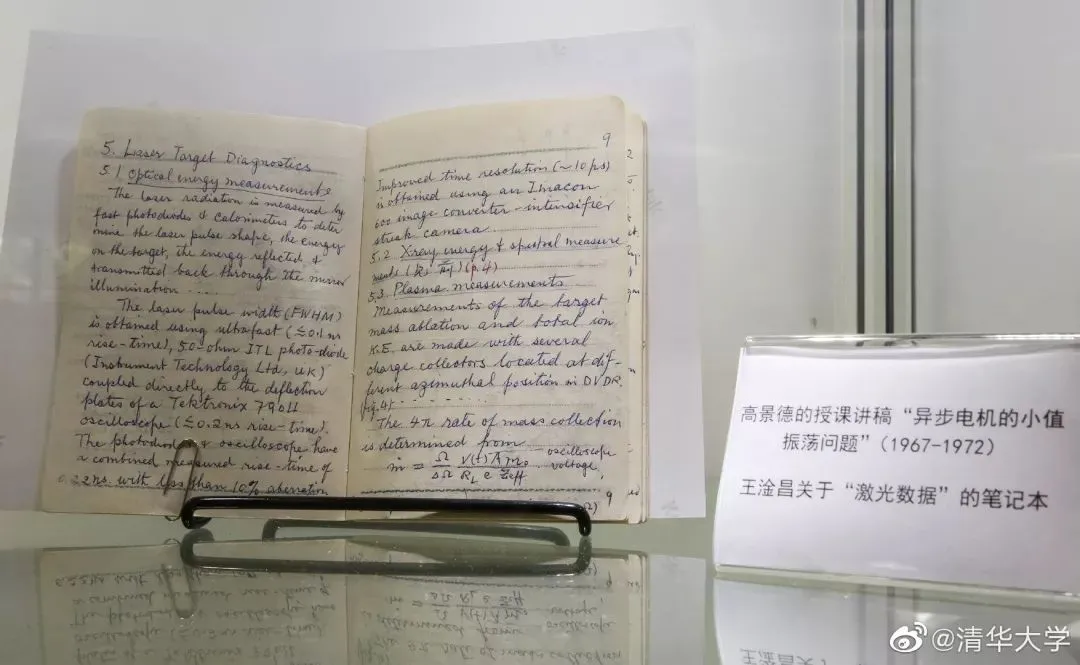 5. Laser Target Diagnostics
5.1 Optical energy measurements
The laser radiation is measured by
fast photodiodes & calorimeters to deter
mine the laser pulse shape, the energy
on the target, the energy reflected &
transmitted back through the mirror
illumination ....
The laser pulse width (FWHM)
is obtained using ultrafast (≦0.1 ns
rise-time), 50-ohm ITL photo-diode
(Instrument Technology Ltd, UK)
coupled directly to the deflection
plates of a Tektronix 7904
oscilloscope (≦0.2 ns rise-time).
The photodiode & oscilloscope have
a combined measured rise-time of
0.22 ns with less than 10% aberration
9
Improved time resolution (~10 ps)
is obtained using an Imacon
600 image converter-intensifier
streak camera
5.2 Xray energy & spectral measure
ments (p.4)
5.3 Plasma measurements
Measurements of the target
mass ablation and total ion
K.E. are made with several
charge collectors located at dif-
ferent azimuthal position in DVDR.
fig.4)
The 4π rate of mass collection
is determined from oscilloscope
ṁ = Ω/ΔΩ V(t) A m₀ / R_L e Zeff voltage,
9
高景德的授课讲稿“异步电机的小值
振荡问题”(1967-1972)
王淦昌关于“激光数据”的笔记本
@清华大学